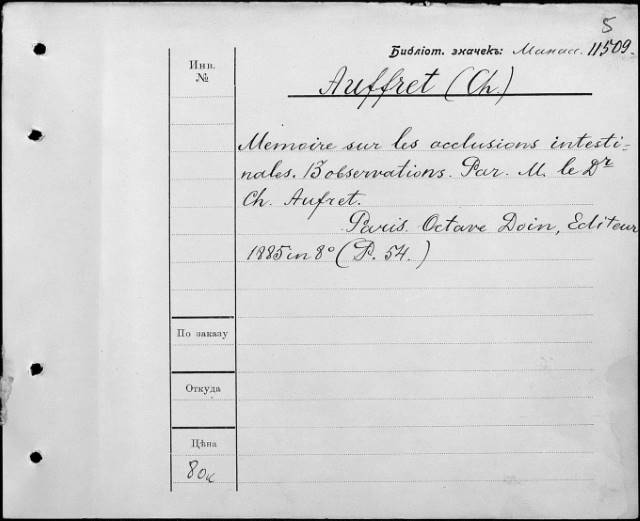 5
Библіот. значекъ: Манас. 11509.
Инв.
№
Auffret (Ch.)
Memoire sur les occlusions intesti-
nales. 13 observations. Par. M. le Dr
Ch. Aufret.
Paris. Octave Doin, Editeur
1885 in 8° (P. 54.)
По заказу
Откуда
Цѣна
80к